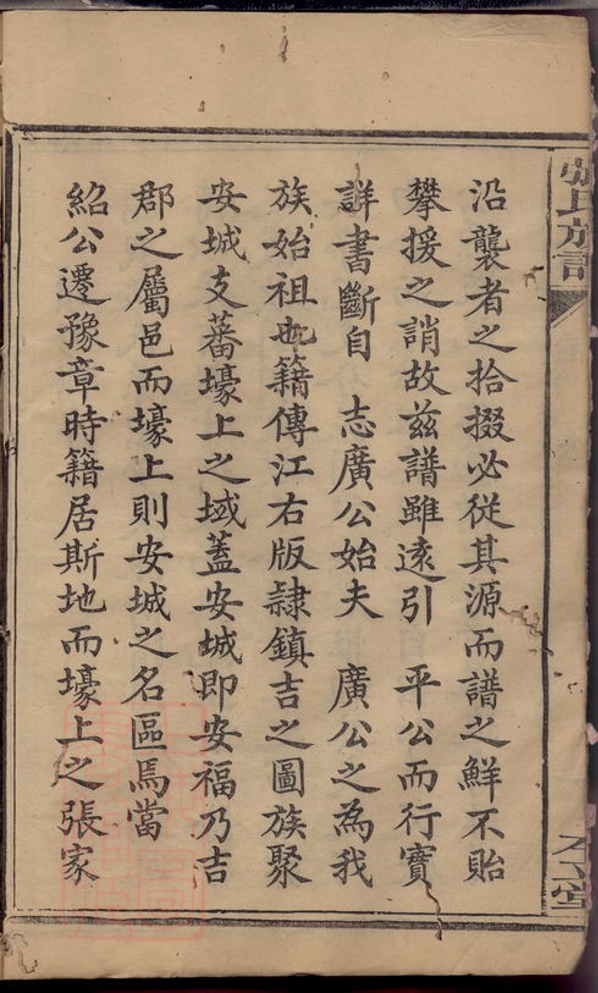 沿襲者之拾掇必從其源而譜之鮮不貽
攀援之誚故茲譜雖遠引　平公而行實
詳書斷自　志廣公始夫　廣公之為我
族始祖也籍傳江右版隸鎮吉之圖族聚
安城支蕃壕上之域蓋安城即安福乃吉
郡之屬邑而壕上則安城之名區焉當
紹公遷豫章時籍居斯地而壕上之張家